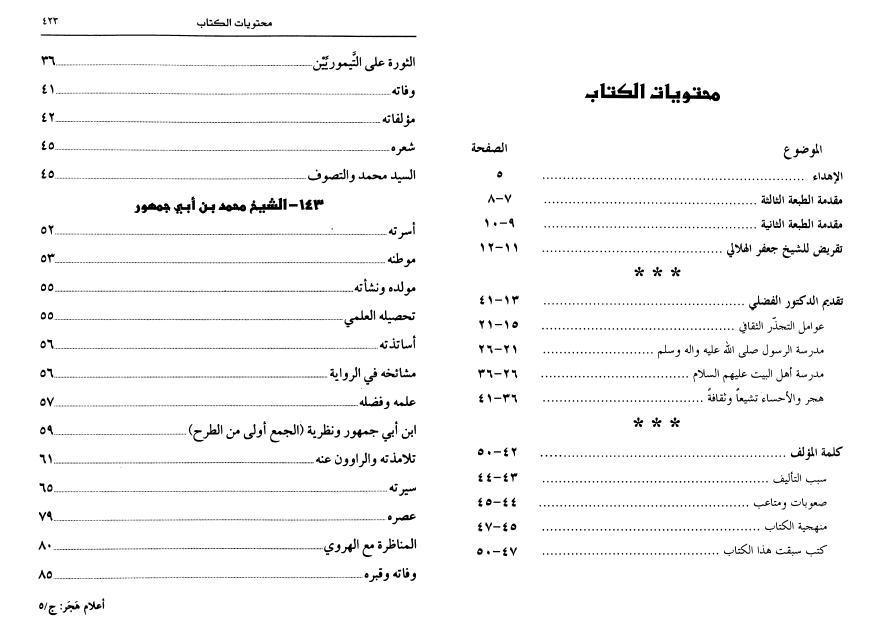 محتويات الكتاب
الموضوع الصفحة
الإهداء ........ ٥
مقدمة الطبعة الثالثة ........ ٧-٨
مقدمة الطبعة الثانية ........ ٩-١٠
تقريض للشيخ جعفر الهلالي ........ ١١-١٢
* * *
تقديم الدكتور الفضلي ........ ١٣-٤١
عوامل التجذّر الثقافي ........ ١٥-٢١
مدرسة الرسول صلى الله عليه واله وسلم ........ ٢١-٢٦
مدرسة أهل البيت عليهم السلام ........ ٢٦-٣٦
هجر والأحساء تشيعاً وثقافةً ........ ٣٦-٤١
* * *
كلمة المؤلف ........ ٤٢-٥٠
سبب التأليف ........ ٤٣-٤٤
صعوبات ومتاعب ........ ٤٤-٤٥
منهجية الكتاب ........ ٤٥-٤٧
كتب سبقت هذا الكتاب ........ ٤٧-٥٠
محتويات الكتاب ٤٢٣
الثورة على التَّيموريَّيْن ........ ٣٦
وفاته ........ ٤١
مؤلفاته ........ ٤٢
شعره ........ ٤٥
السيد محمد والتصوف ........ ٤٥
١٤٣-الشيخ محمد بن أبي جمهور
أسرته ........ ٥٢
موطنه ........ ٥٣
مولده ونشأته ........ ٥٥
تحصيله العلمي ........ ٥٥
أساتذته ........ ٥٦
مشائخه في الرواية ........ ٥٦
علمه وفضله ........ ٥٧
ابن أبي جمهور ونظرية (الجمع أولى من الطرح) ........ ٥٩
تلامذته والراوون عنه ........ ٦١
سيرته ........ ٦٥
عصره ........ ٧٩
المناظرة مع الهروي ........ ٨٠
وفاته وقبره ........ ٨٥
أعلام هَجَر: ج/٥